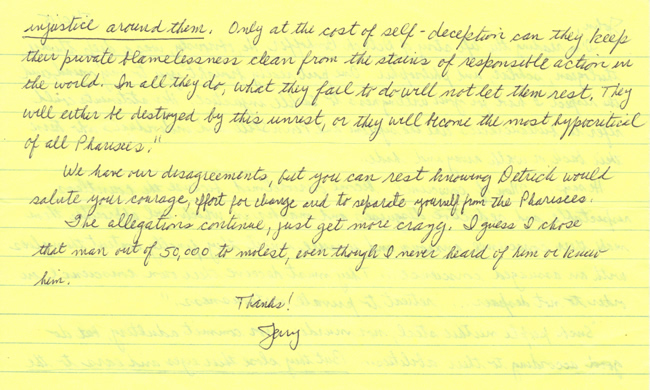 injustice around them. Only at the cost of self-deception can they keep
their private blamelessness clean from the stains of responsible action in
the world. In all they do, what they fail to do will not let them rest. They
will either be destroyed by this unrest, or they will become the most hypocritical
of all Pharisees."
We have our disagreements, but you can rest knowing Detrick would
salute your courage, effort for change and to separate yourself from the Pharisees.
The allegations continue, just get more crazy. I guess I chose
that man out of 50,000 to molest, even though I never heard of him or knew
him.
Thanks!
Jerry